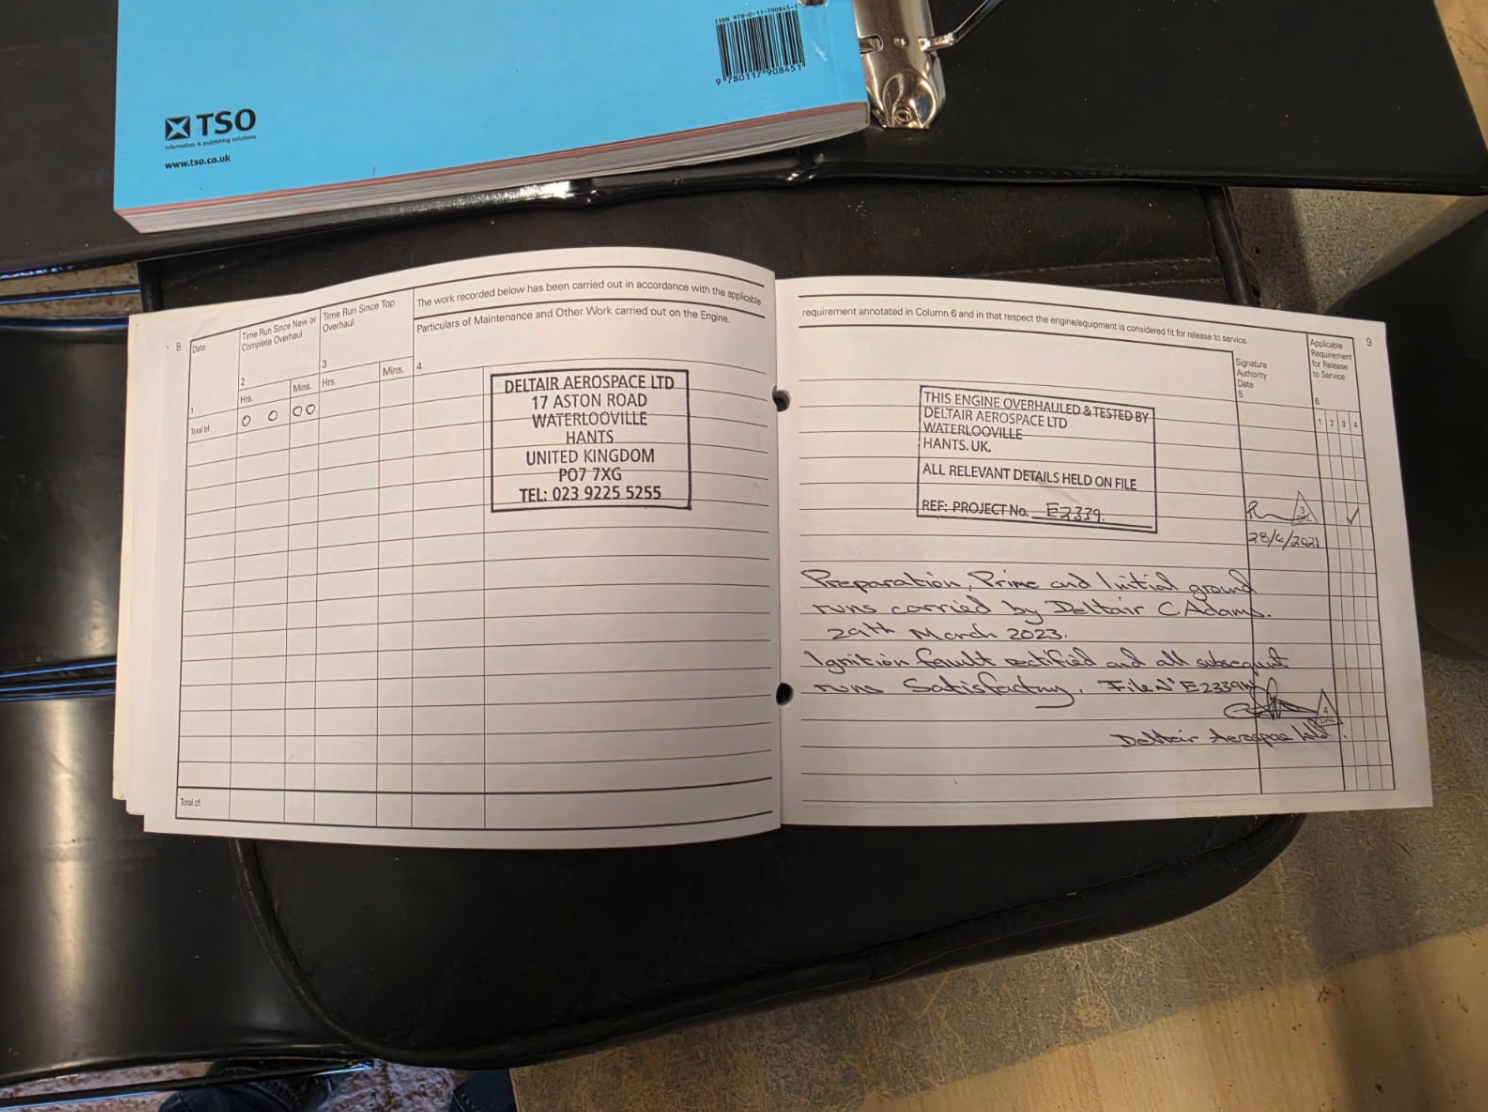 ISBN 978-0-11-790845-1
9 780117 908451
TSO
information & publishing solutions
www.tso.co.uk
8
Date
Time Run Since New or
Complete Overhaul
Time Run Since Top
Overhaul
The work recorded below has been carried out in accordance with the applicable
Particulars of Maintenance and Other Work carried out on the Engine.
1
2
3
4
Hrs.
Mins.
Hrs.
Mins.
Total bf.
0 0 00
DELTAIR AEROSPACE LTD
17 ASTON ROAD
WATERLOOVILLE
HANTS
UNITED KINGDOM
PO7 7XG
TEL: 023 9225 5255
Total cf.
requirement annotated in Column 6 and in that respect the engine/equipment is considered fit for release to service.
9
Signature
Authority
Date
5
Applicable
Requirement
for Release
to Service
6
1 2 3 4
THIS ENGINE OVERHAULED & TESTED BY
DELTAIR AEROSPACE LTD
WATERLOOVILLE
HANTS. UK.
ALL RELEVANT DETAILS HELD ON FILE
REF: PROJECT No. E2339.
28/6/2021
Preparation, Prime and Initial ground
runs carried by Deltair C. Adams.
29th March 2023.
Ignition fault rectified and all subsequent
runs Satisfactory. File Nº E2339
4
DAL
Deltair Aerospace Ltd.